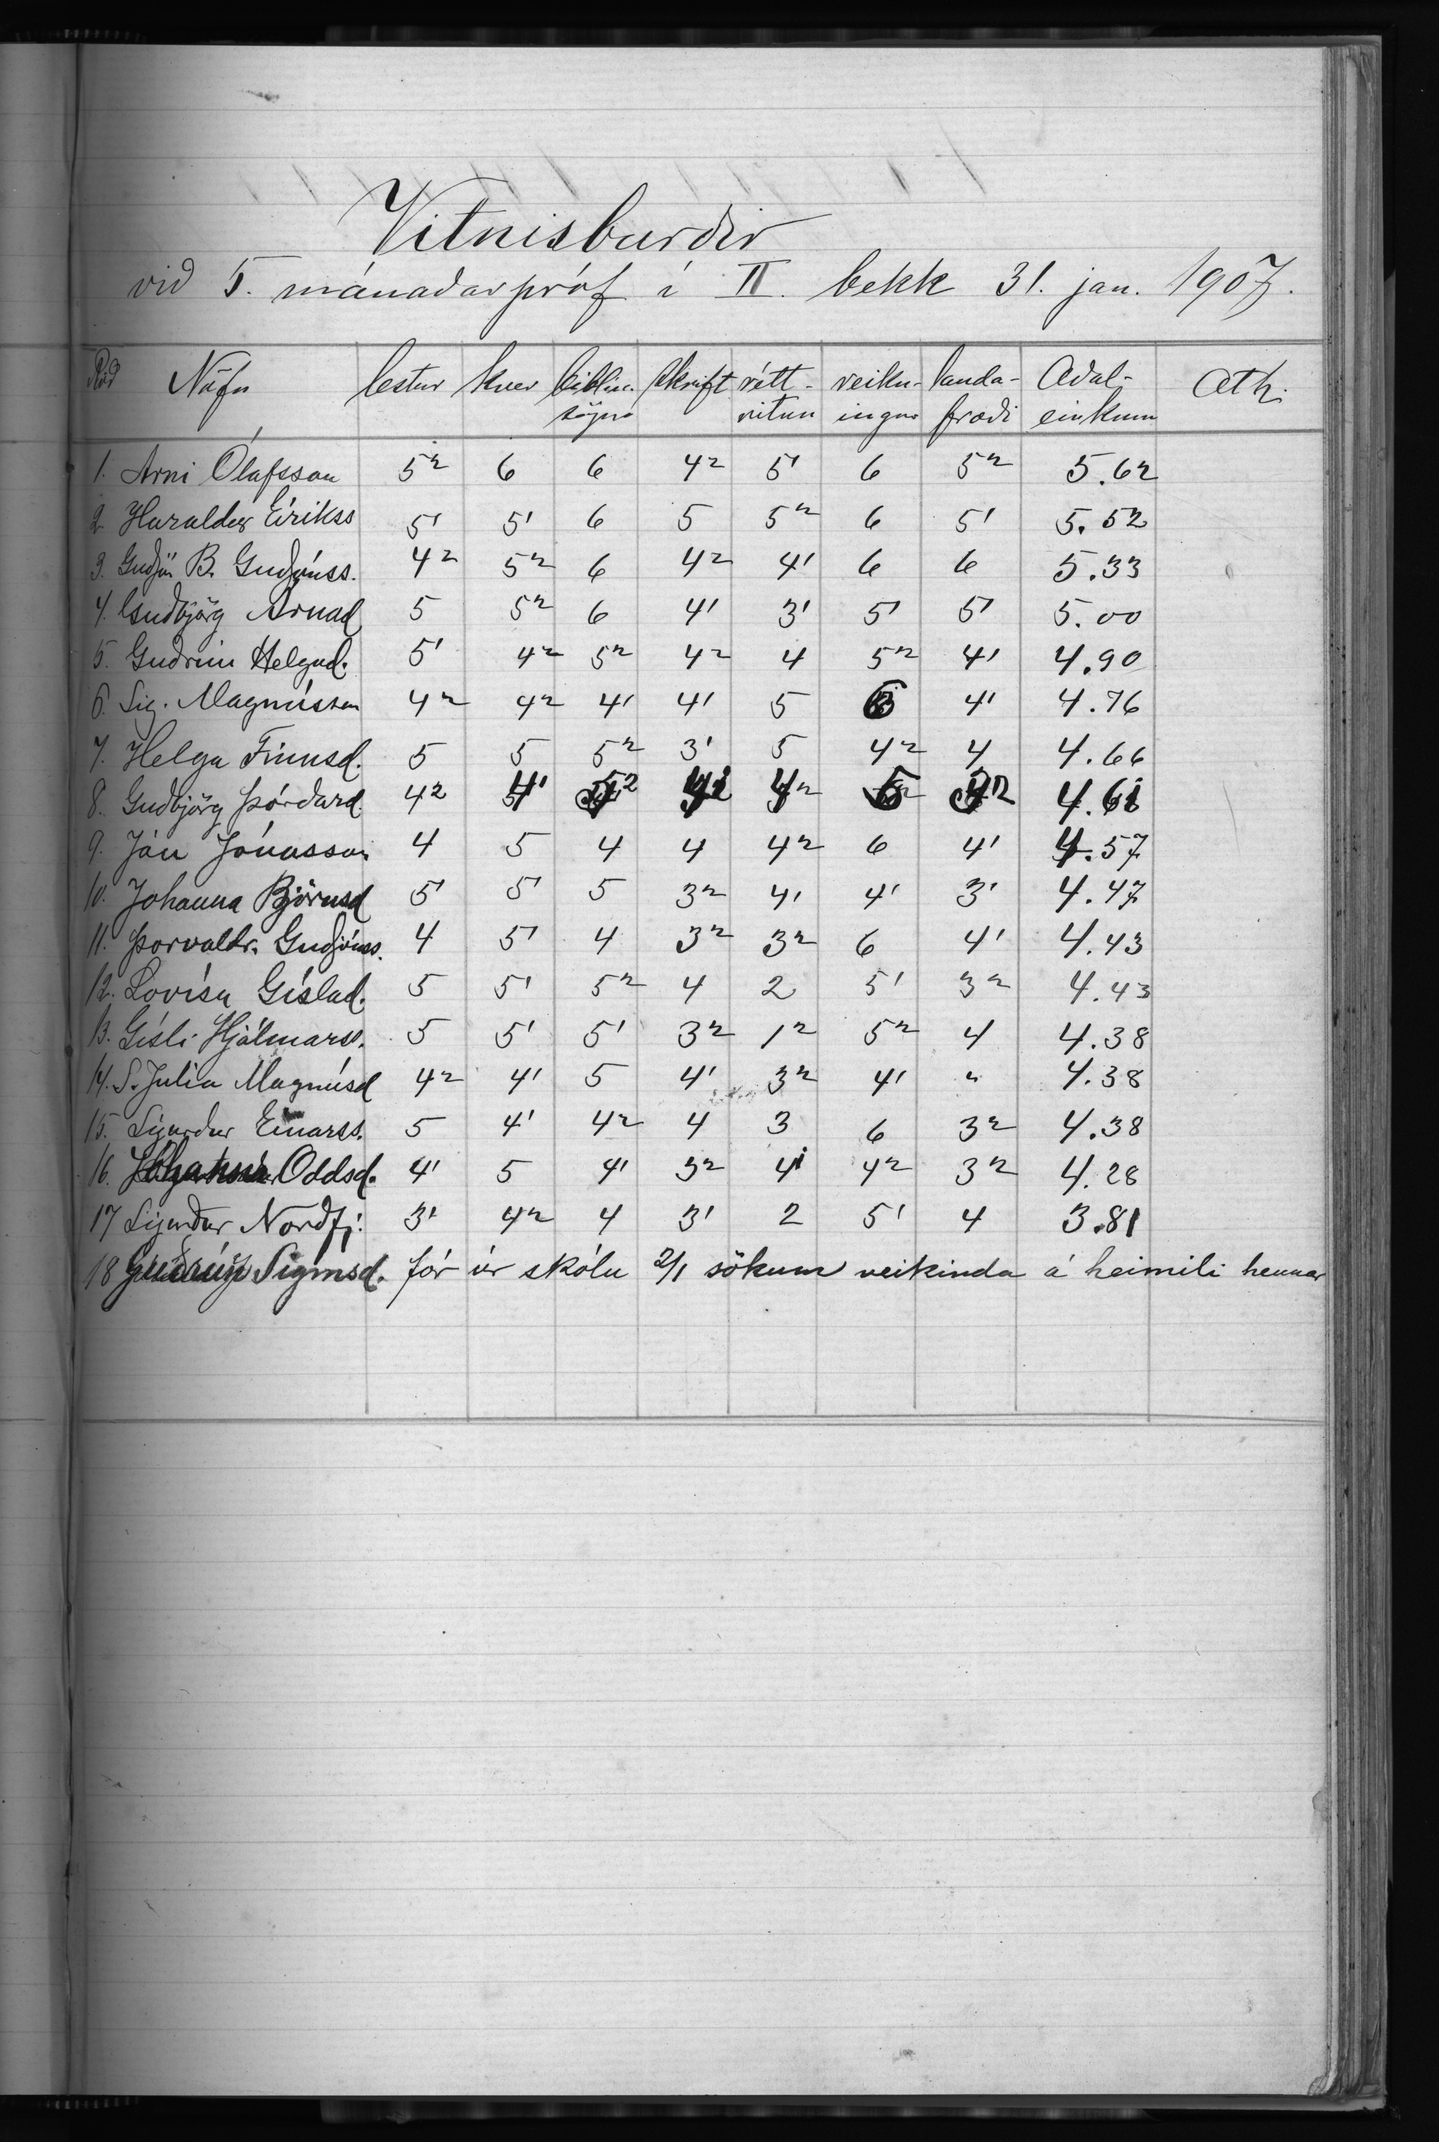 Vitnisburdir
vid 5. mánadarpróf í II. bekk 31. jan. 1907.
Röð Nöfn lestur kver biblíu- skrift rétt- reikn- landa- Adal- Ath.
sögur ritun ingur frædi einkunn
1. Arni Ólafsson 5² 6 6 4² 5¹ 6 5² 5.62
2 Haraldur Eirikss 5¹ 5¹ 6 5 5² 6 5¹ 5.52
3. Gudjón B. Gudjónss. 4² 5² 6 4² 4¹ 6 6 5.33
4. Gudbjörg Arnad 5 5² 6 4¹ 3¹ 5¹ 5¹ 5.00
5. Gudrún Helgad. 5¹ 4² 5² 4² 4 5² 4¹ 4.90
6. Sig. Magnússon 4² 4² 4¹ 4¹ 5 6 4¹ 4.76
7. Helga Finnsd. 5 5 5² 3¹ 5 4² 4 4.66
8. Gudbjörg Þórdard. 4² 4¹ 4² 5 4.61
9. Ján Jónasson 4 5 4 4 4² 6 4¹ 4.57
10. Johanna Björnsd 5¹ 5¹ 5 3² 4¹ 4¹ 3¹ 4.47
11. Þorvaldr. Gudjónss. 4 5¹ 4 3² 3² 6 4¹ 4.43
12. Lovísa Gíslad. 5 5¹ 5² 4 2 5¹ 3² 4.43
13. Gísli Hjálmarss. 5 5¹ 5¹ 3² 1² 5² 4 4.38
14. S. Julia Magnúsd 4² 4¹ 5 4¹ 3² 4¹ " 4.38
15. Sigurdur Einarss. 5 4¹ 4² 4 3 6 3² 4.38
16. Jóhanna Oddsd. 4¹ 5 4¹ 3² 4¹ 4² 3² 4.28
17 Sigurdur Nordfj: 3¹ 4² 4 3¹ 2 5¹ 4 3.81
18 Gudrún Sigmsd. fór úr skóla 2/1 sökum veikinda á heimili hennar